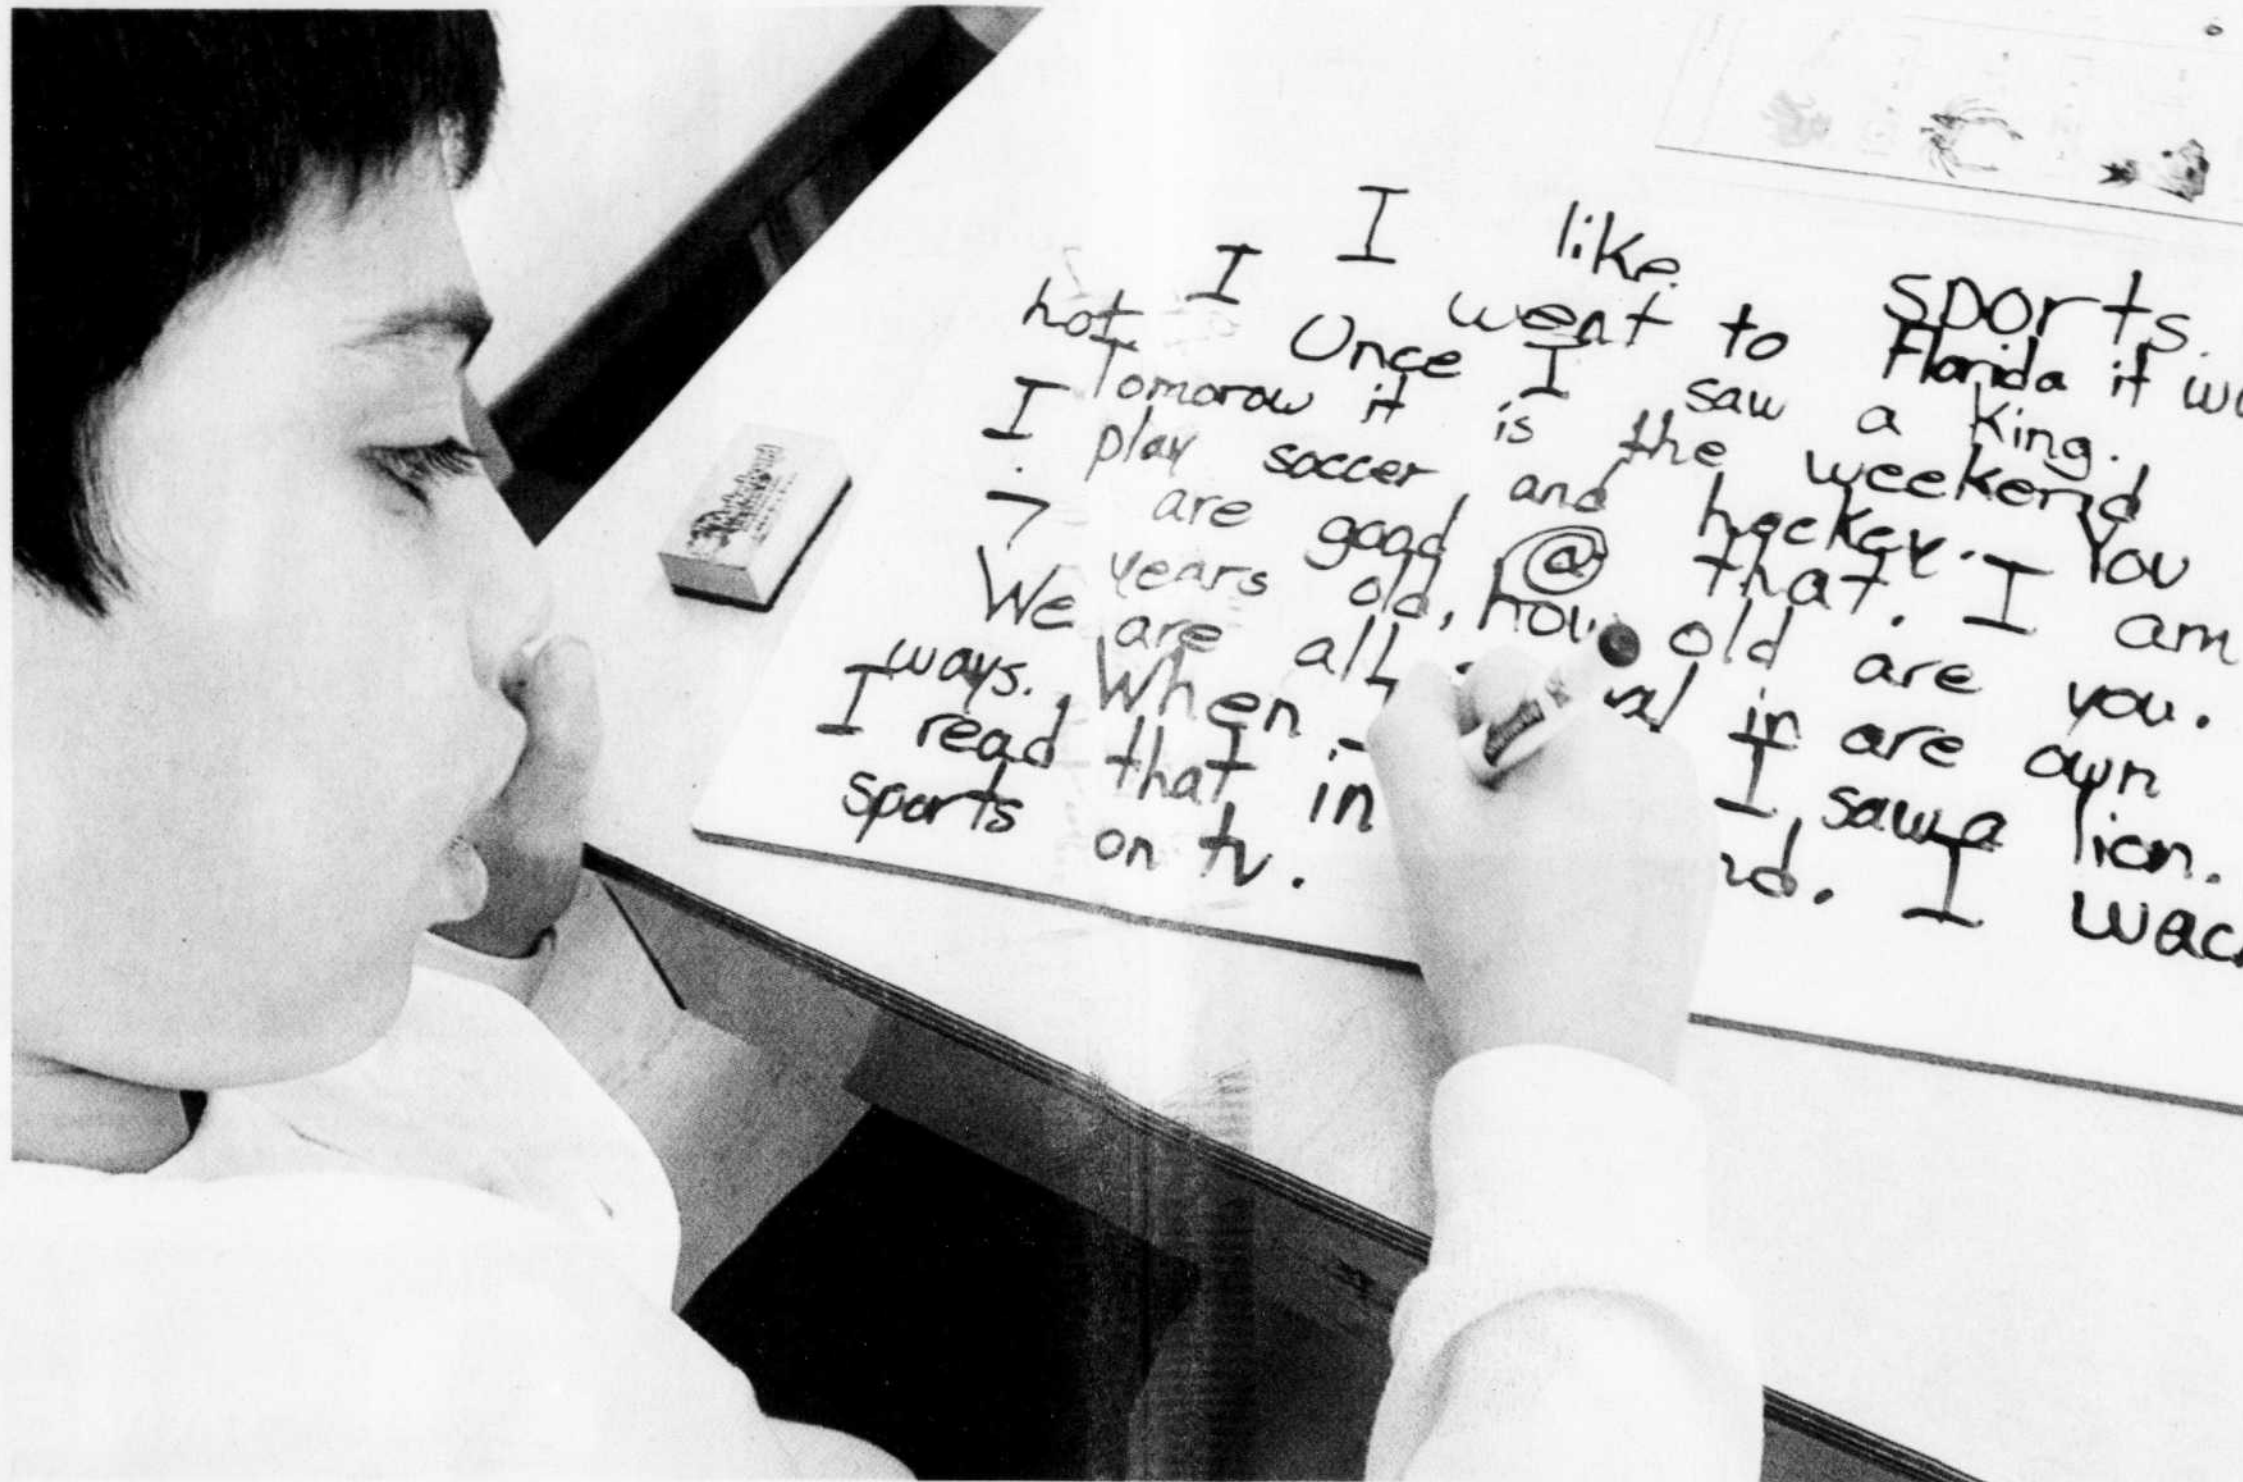 I like sports.
I I went to Florida it
hot. Once I saw a king.
Tomorow it is the weekend
I play soccer, and hockey. You
are good @ that. I am
7 years old, how old are you.
We are all in are own
ways. When I saw a lion.
I read that in I
sports on tv.